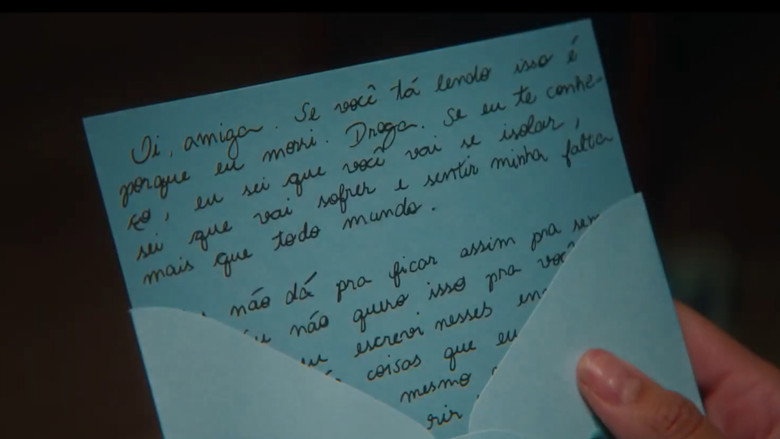 Oi, amiga. Se você tá lendo isso é
porque eu morri. Droga. Se eu te conhe-
ço, eu sei que você vai se isolar,
sei que vai sofrer e sentir minha falta
mais que todo mundo.
não dá pra ficar assim pra sem
não quero isso pra você
escrevi nesses en
coisas que eu
mesmo
rir